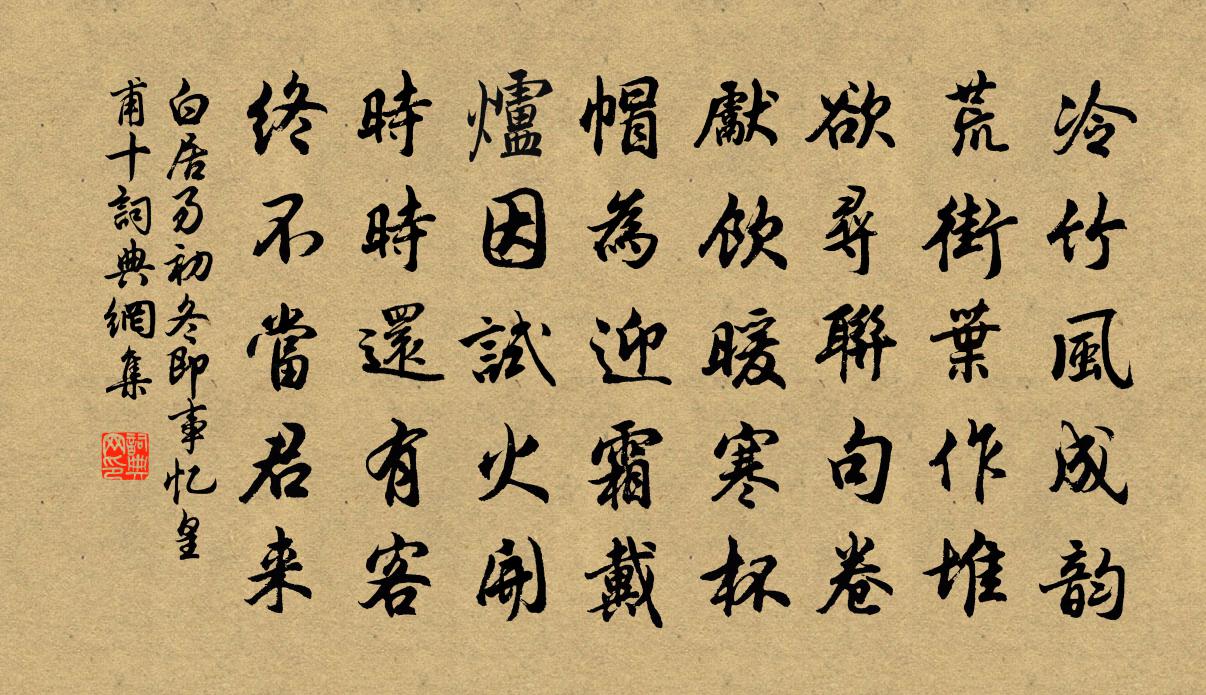 冷竹風成韵
荒街葉作堆
欲尋聯句卷
獻飲暖寒杯
帽為迎霜戴
爐因試火開
時時還有客
終不當君来
白居易初冬即事忆皇
甫十詞典網集
詞典
网印